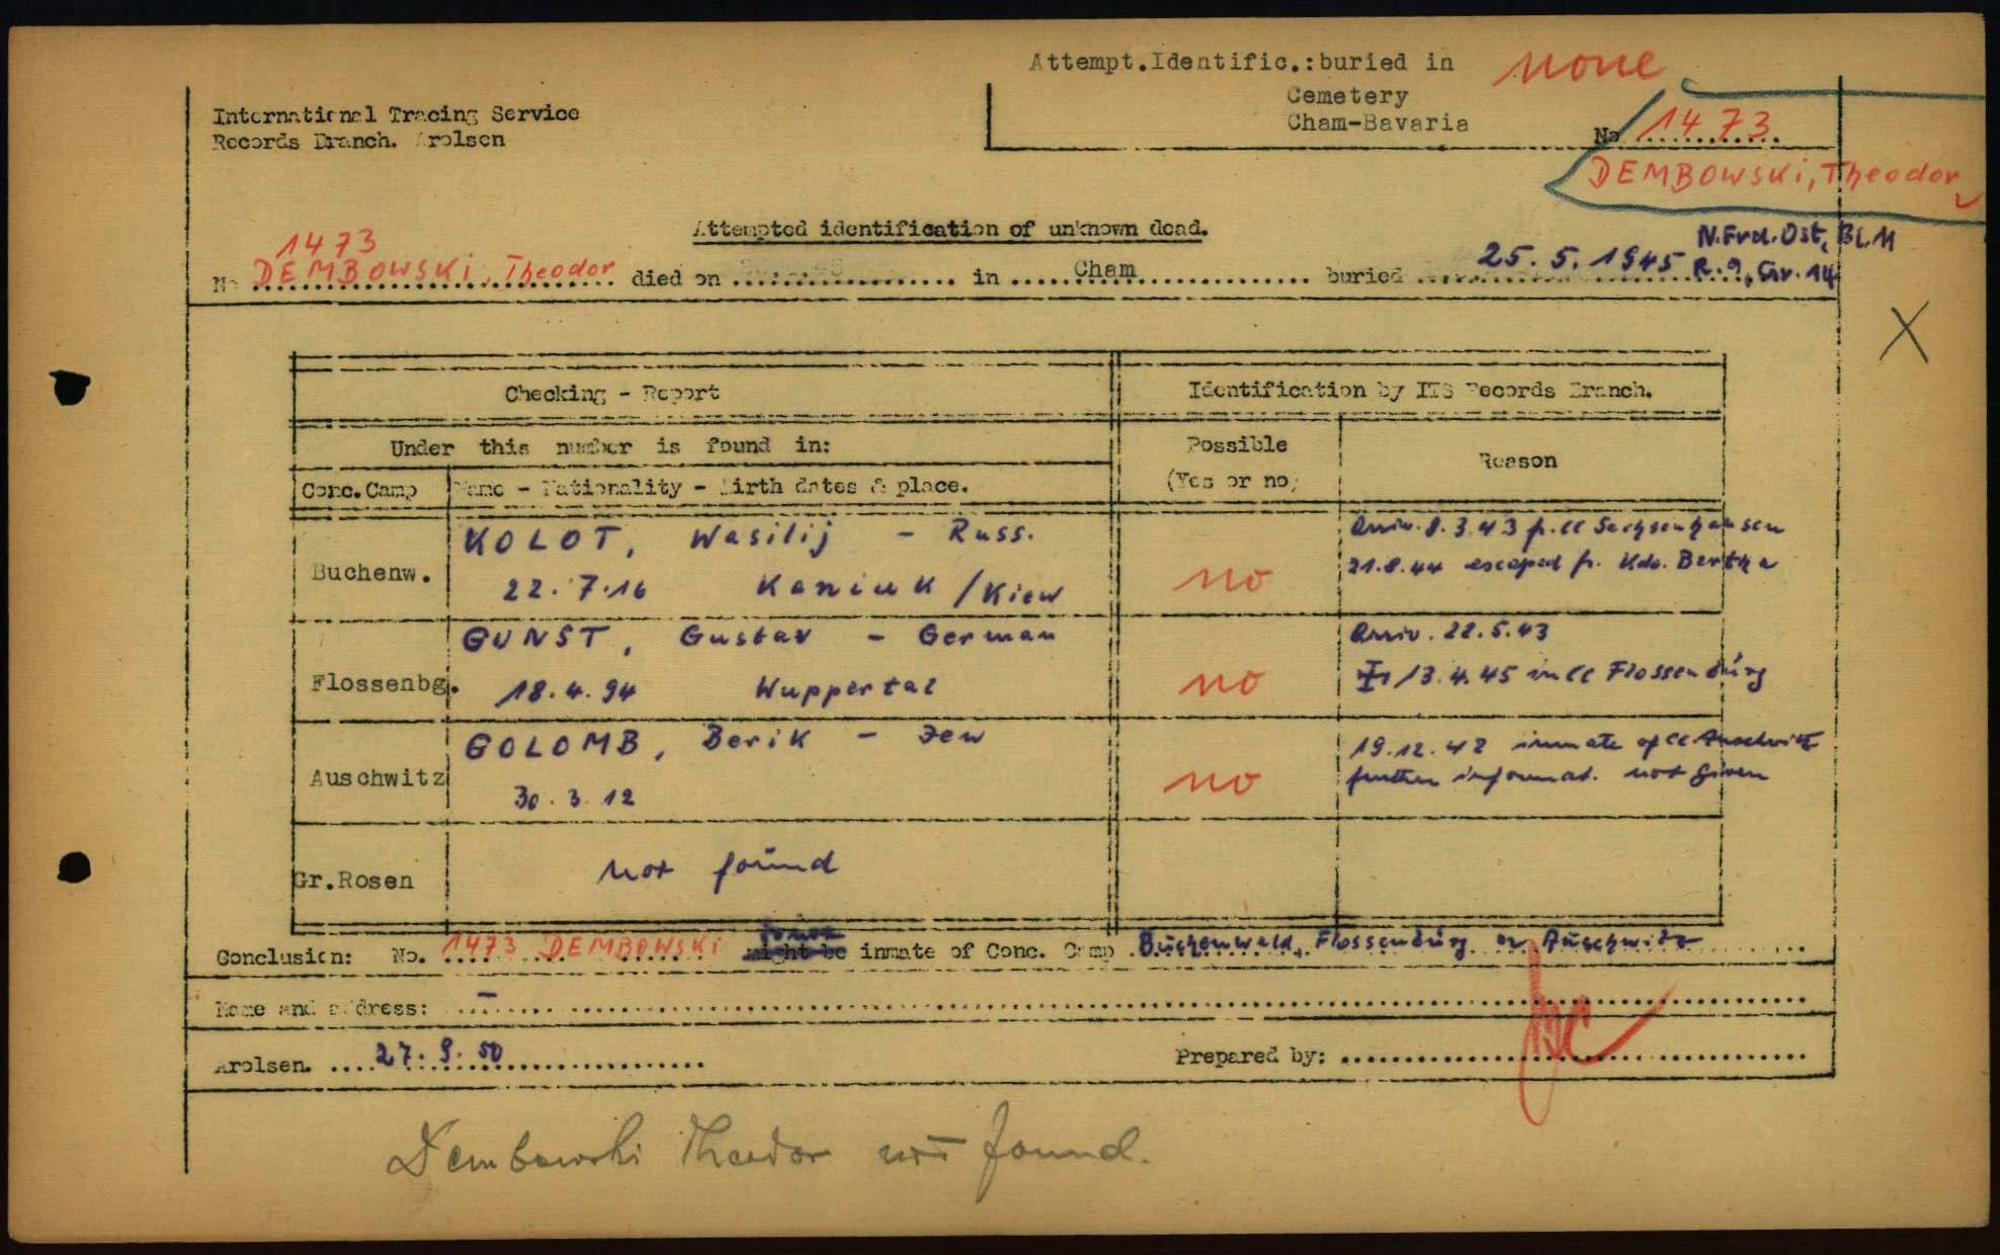 Attempt.Identific.:buried in none
Cemetery
Cham-Bavaria
International Tracing Service
Records Branch. Arolsen
No 1473
DEMBOWSKI, Theodor
Attempted identification of unknown dead.
1473
N.Frd.Ost, Bl.11
No DEMBOWSKI, Theodor died on in Cham buried 25.5.1945 R.9, Gr.14
X
Checking - Report
Identification by ITS Records Branch.
Under this number is found in:
Possible
(Yes or no)
Reason
Conc.Camp
Name - Nationality - Birth dates & place.
Buchenw.
KOLOT, Wasilij - Russ.
22.7.16 Kaniuk / Kiew
no
Arriv. 8.3.43 fr. CC Sachsenhausen
21.8.44 escaped fr. Kdo. Bertha
Flossenbg.
GUNST, Gustav - German
18.4.94 Wuppertal
no
Arriv. 22.5.43
13.4.45 in CC Flossenbürg
Auschwitz
GOLOMB, Berik - Jew
30.3.12
no
19.12.42 inmate of CC Auschwitz
further informat. not given
Gr.Rosen
not found
Conclusion: No. 1473 DEMBOWSKI might be inmate of Conc. Camp Buchenwald, Flossenbürg or Auschwitz
Name and address: -
Arolsen. 27.9.50
Prepared by:
Dembowski Theodor not found.